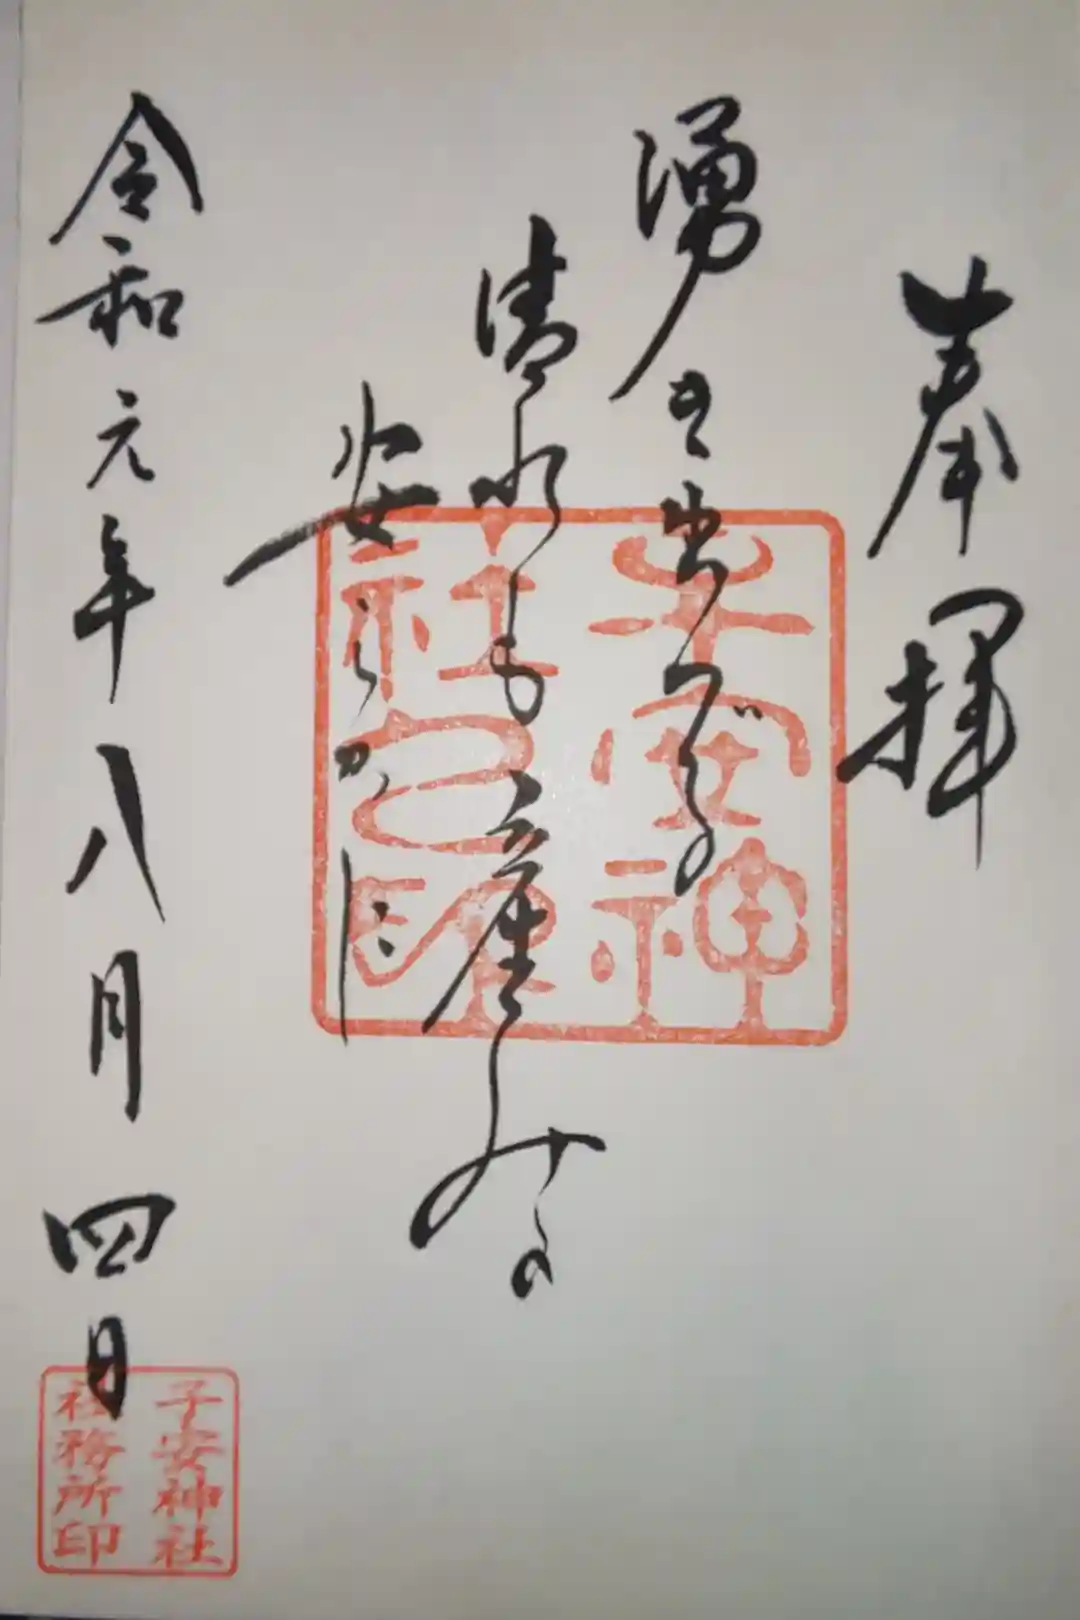 奉拝
湧き出づる
清水も産みの
安らかに
子安神
社之印
令和元年八月四日
子安神社
社務所印